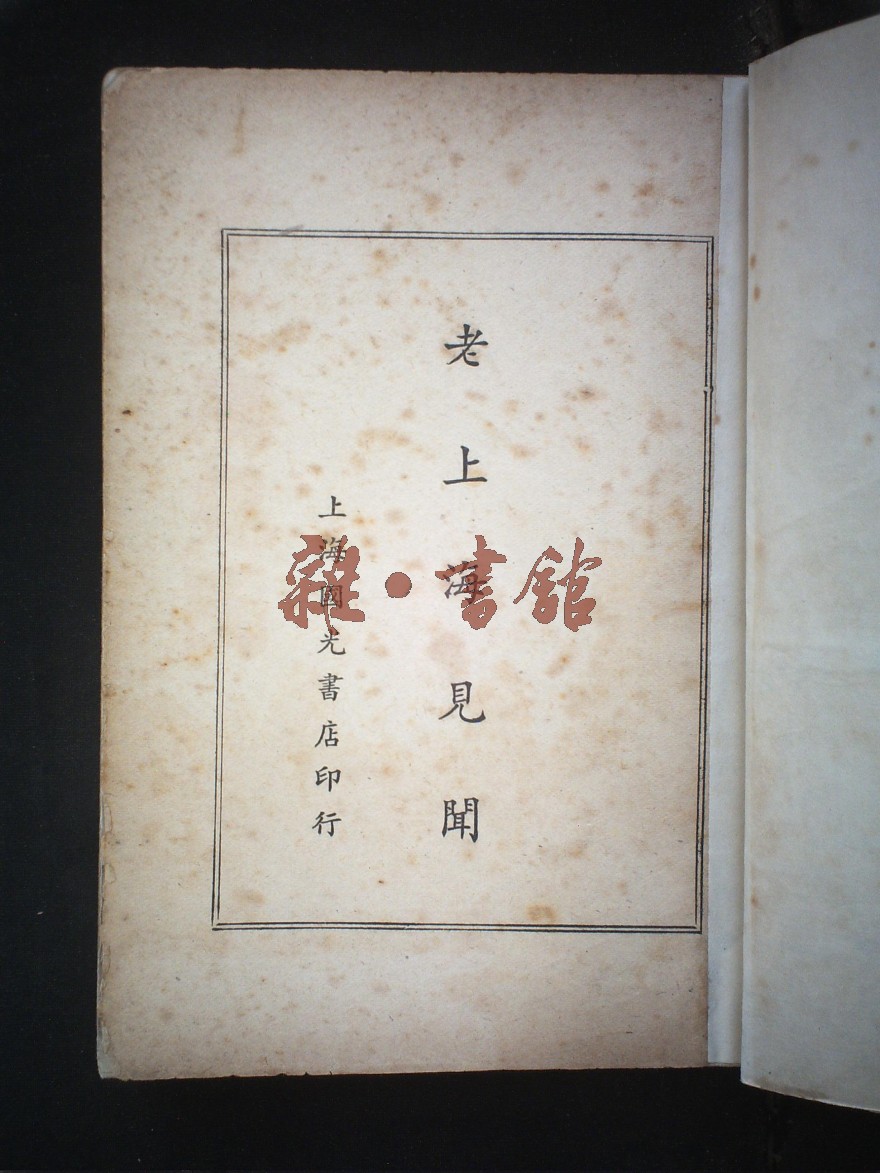 老上海見聞
上海國光書店印行
雜·書館